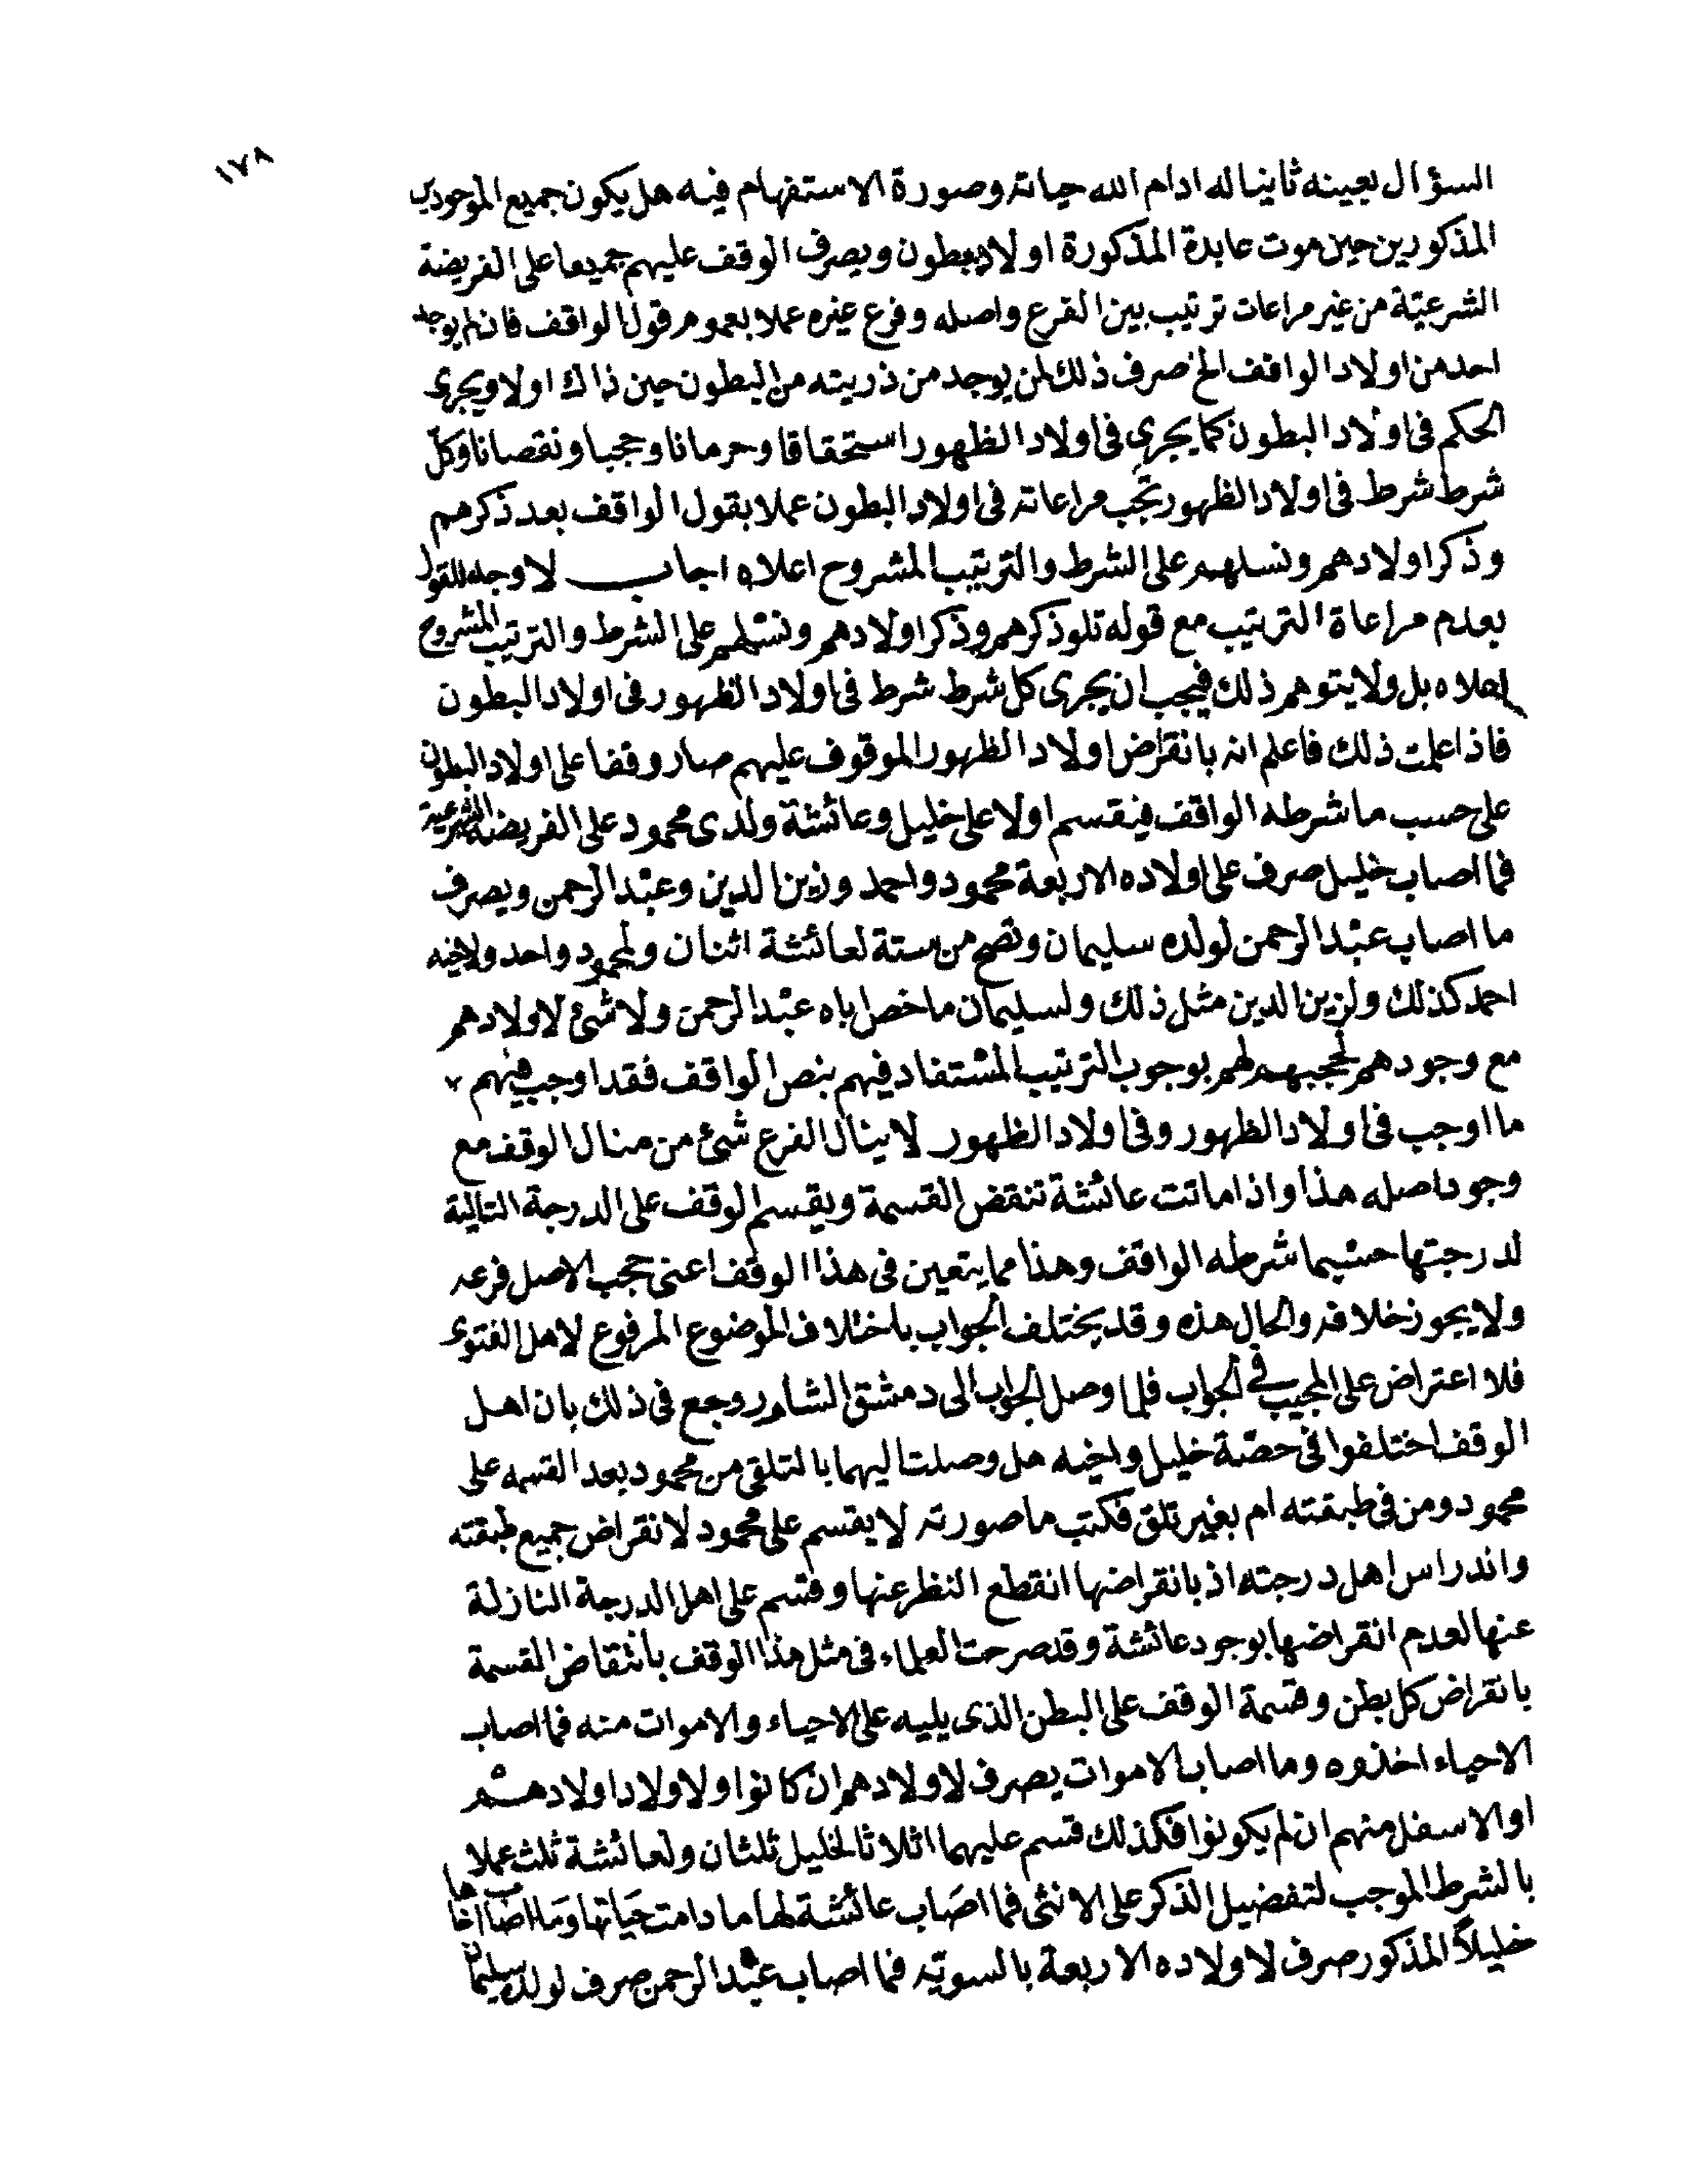 ١٧٨
السؤال بعينه ثانيا له ادام الله حياته وصورة الاستفهام فيه هل يكون جميع الموجودين
المذكورين حين موت عابدة المذكورة اولاد بطون ويصرف الوقف عليهم جميعا على الفريضة
الشرعية من غير مراعات ترتيب بين الفرع واصله وفرع غيره عملا بعموم قول الواقف فان لم يوجد
احد من اولاد الواقف الخ صرف ذلك لمن يوجد من ذريته من البطون حين ذاك اولا ويجرى
الحكم فى اولاد البطون كما يجرى فى اولاد الظهور استحقاقا وحرمانا وحجبا ونقصانا وكل
شرط شرط فى اولاد الظهور تجب مراعاته فى اولاد البطون عملا بقول الواقف بعد ذكرهم
وذكر اولادهم ونسلهم على الشرط والترتيب المشروح اعلاه اجاب لا وجه للقول
بعدم مراعاة الترتيب مع قوله تلو ذكرهم وذكر اولادهم ونسلهم على الشرط والترتيب المشروح
اعلاه بل ولا يتوهم ذلك فيجب ان يجرى كل شرط شرط فى اولاد الظهور فى اولاد البطون
فاذا علمت ذلك فاعلم انه بانقراض اولاد الظهور الموقوف عليهم صار وقفا على اولاد البطون
على حسب ما شرطه الواقف فيقسم اولا على خليل وعائشة ولدى محمود على الفريضة الشرعية
فما اصاب خليل صرف على اولاده الاربعة محمود واحمد وزين الدين وعبد الرحمن ويصرف
ما اصاب عبد الرحمن لولده سليمان وتصح من ستة لعائشة اثنان ولمحمود واحد ولاخيه
احمد كذلك ولزين الدين مثل ذلك ولسليمان ما خص اباه عبد الرحمن ولا شئ لاولادهم
مع وجودهم لحجبهم لهم بوجوب الترتيب المستفاد فيهم بنص الواقف فقد اوجب فيهم
ما اوجب فى اولاد الظهور وفى اولاد الظهور لا ينال الفرع شئ من منال الوقف مع
وجود اصله هذا واذا ماتت عائشة تنقض القسمة ويقسم الوقف على الدرجة التالية
لدرجتها حسبما شرطه الواقف وهذا مما يتعين فى هذا الوقف اعنى حجب الاصل فرعه
ولا يجوز خلافه والحال هذه وقد يختلف الجواب باختلاف الموضوع المرفوع لاهل الفتوى
فلا اعتراض على المجيب فى الجواب فلما وصل الجواب الى دمشق الشام روجع فى ذلك بان اهل
الوقف اختلفوا فى حصة خليل واخيه هل وصلت اليهما بالتلقى من محمود بعد القسمه على
محمود ومن فى طبقته ام بغير تلق فكتب ما صورته لا يقسم على محمود لانقراض جميع طبقته
واندراس اهل درجته اذ بانقراضها انقطع النظر عنها وقسم على اهل الدرجة النازلة
عنها لعدم انقراضها بوجود عائشة وقد صرحت العلماء فى مثل هذا الوقف بانتقاض القسمة
بانقراض كل بطن وقسمة الوقف على البطن الذى يليه على الاحياء والاموات منه فما اصاب
الاحياء اخذوه وما اصاب الاموات يصرف لاولادهم ان كانوا ولاولاد اولادهم
او الاسفل منهم ان لم يكونوا فكذلك قسم عليهما اثلاثا لخليل ثلثان ولعائشة ثلث عملا
بالشرط الموجب لتفضيل الذكر على الانثى فما اصاب عائشة لها ما دامت حياتها وما اصاب اخاها
خليلاً المذكور صرف لاولاده الاربعة بالسوية فما اصاب عبد الرحمن صرف لولده سليمان